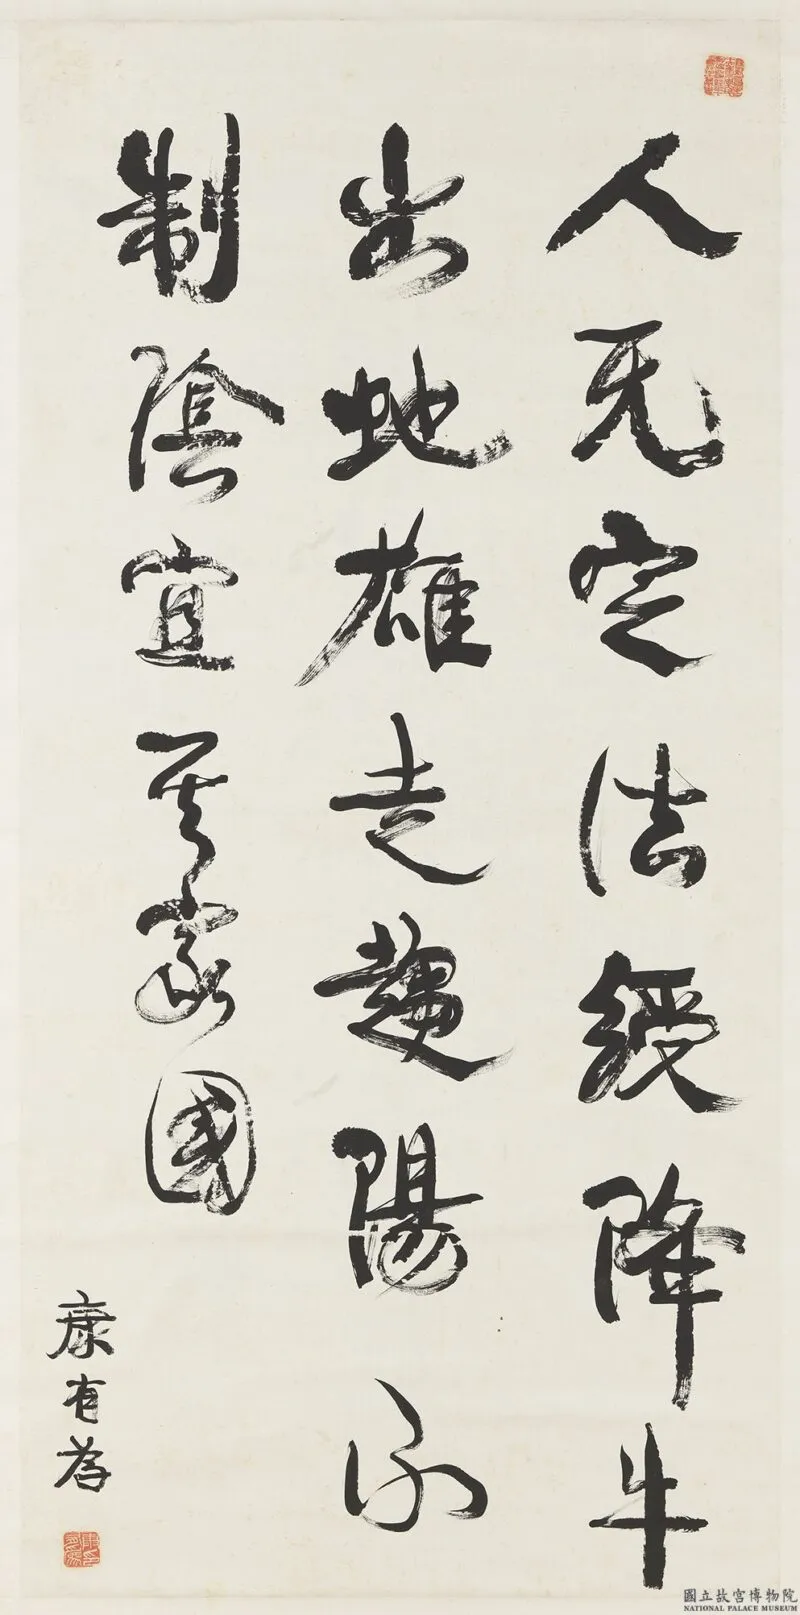 人无定法綬降牛
出地雄走趨陽不
制陰宜其家國
康有為
國立故宮博物院
NATIONAL PALACE MUSEUM